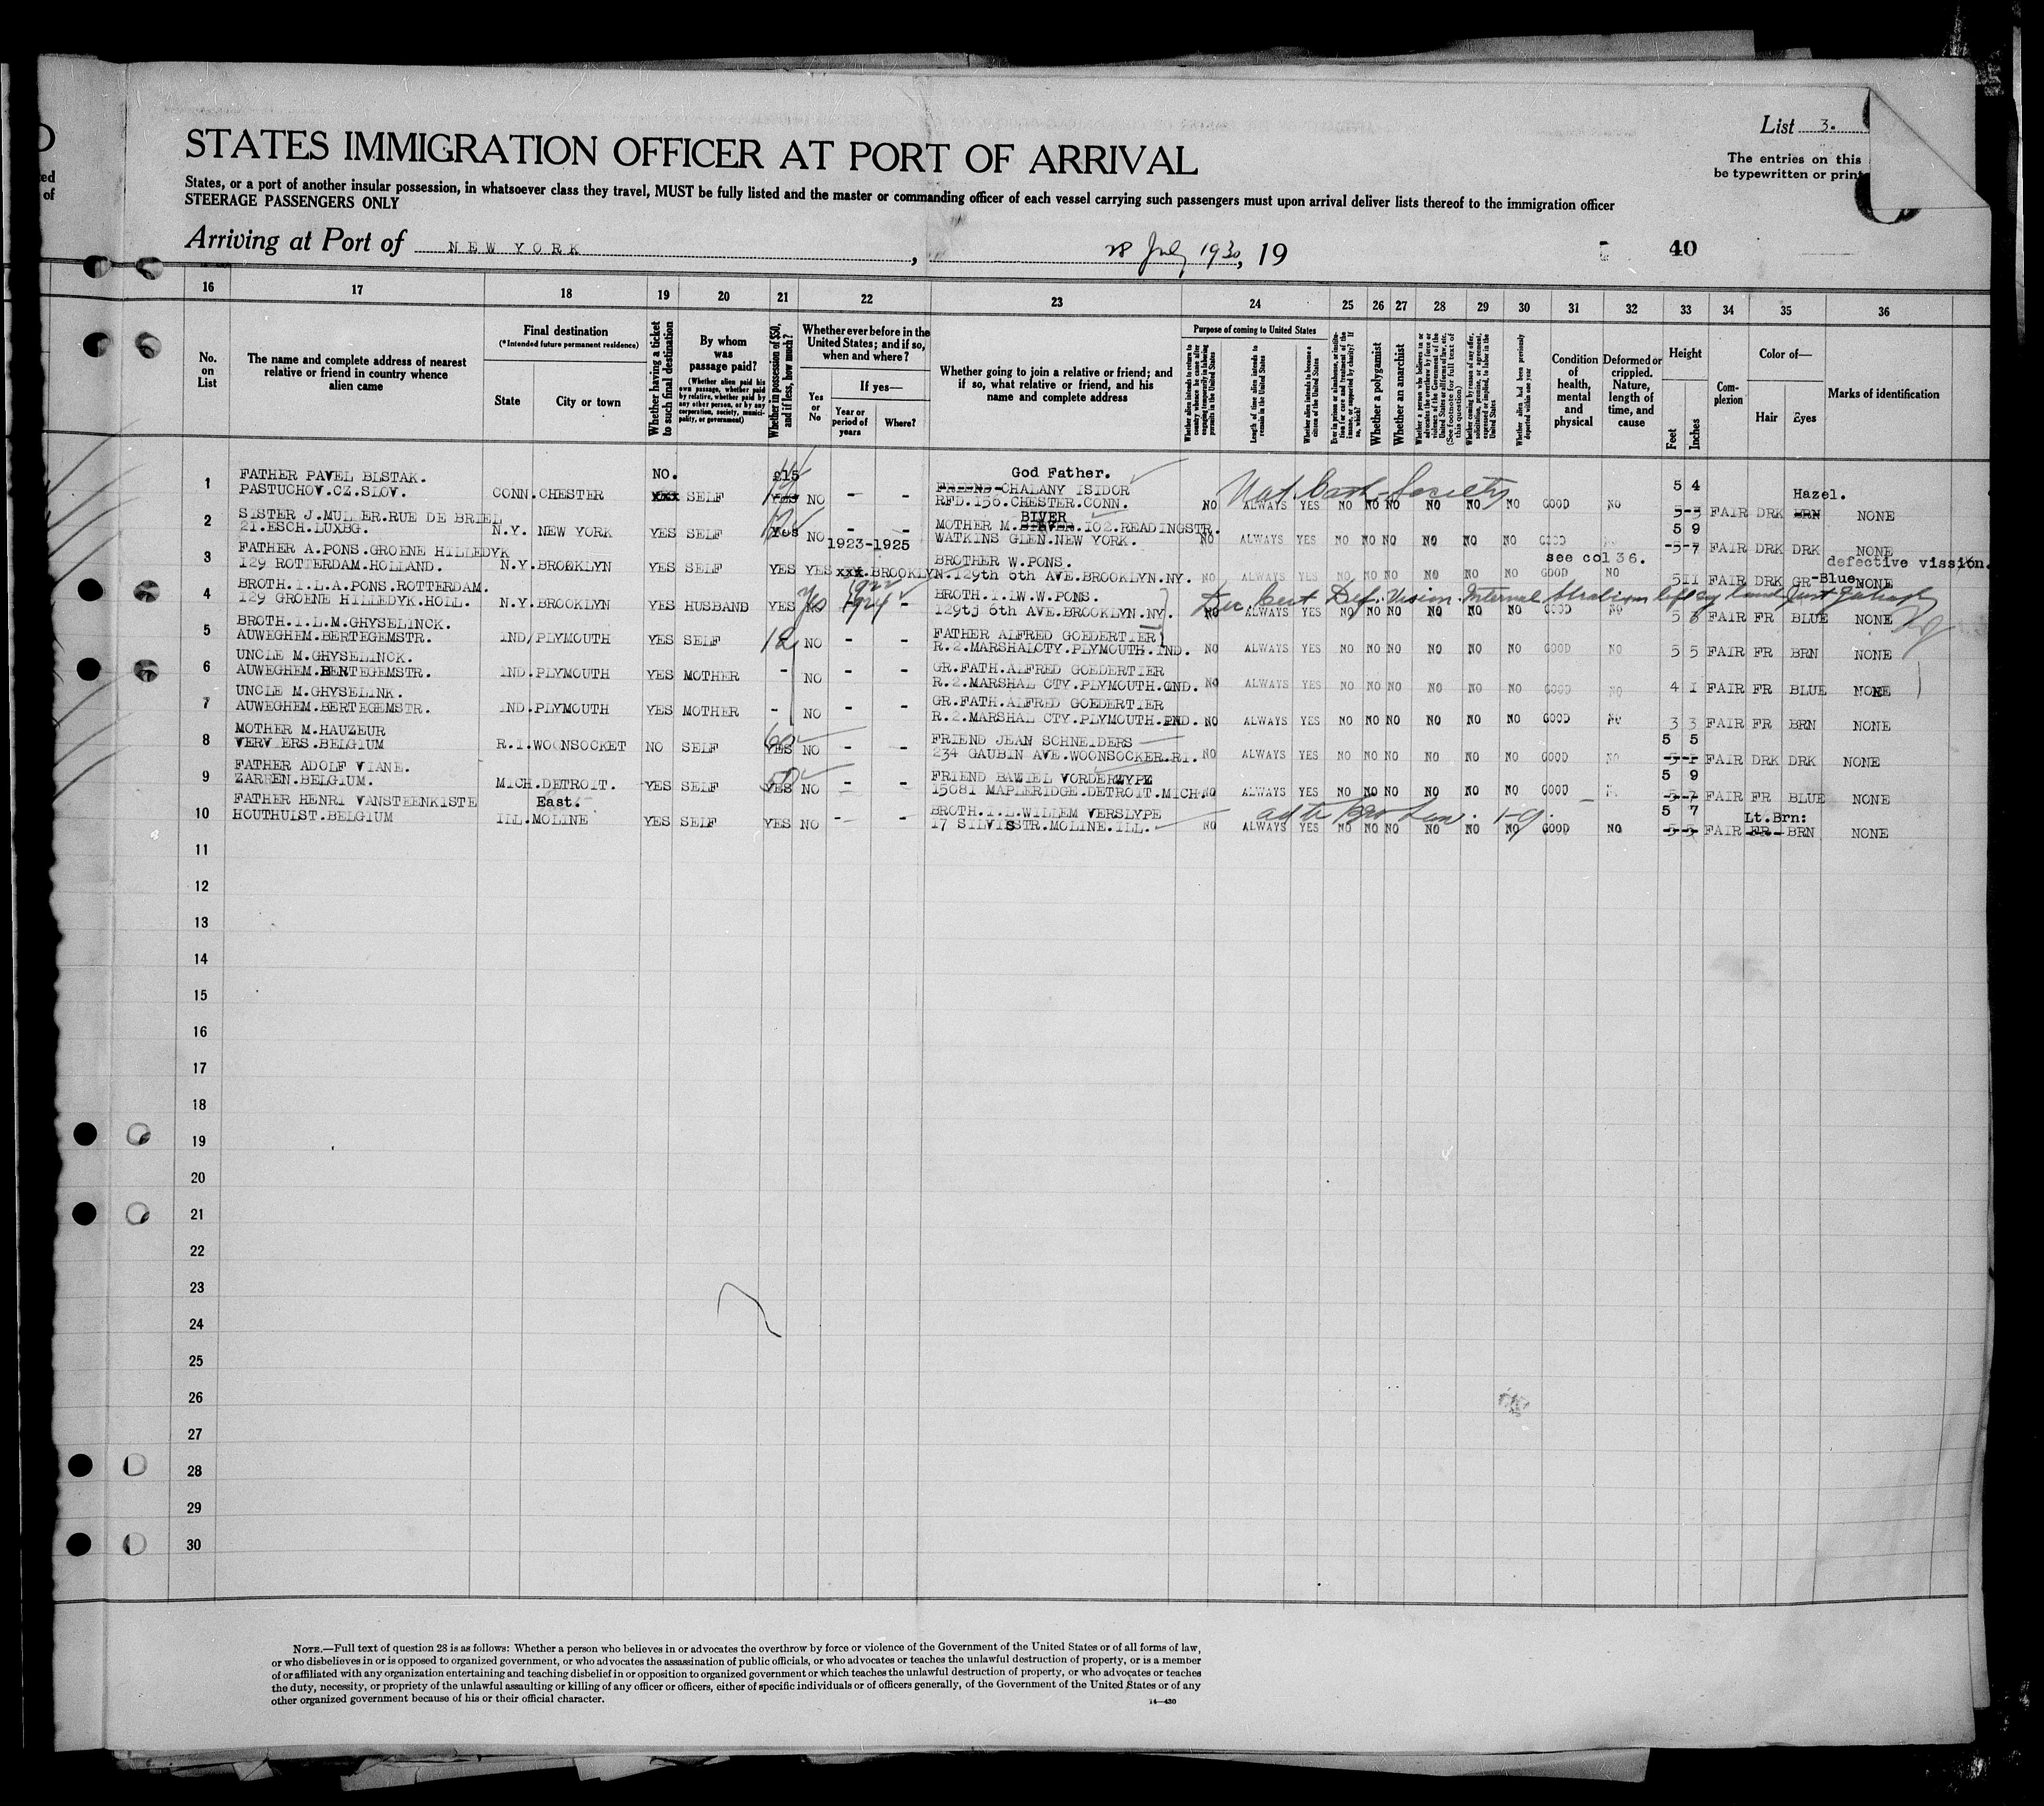 List 3.
STATES IMMIGRATION OFFICER AT PORT OF ARRIVAL
The entries on this
be typewritten or print
ed
of
States, or a port of another insular possession, in whatsoever class they travel, MUST be fully listed and the master or commanding officer of each vessel carrying such passengers must upon arrival deliver lists thereof to the immigration officer
STEERAGE PASSENGERS ONLY
Arriving at Port of NEW YORK, 28 July 1930, 19
40
16 17 18 19 20 21 22 23 24 25 26 27 28 29 30 31 32 33 34 35 36
No. on List
The name and complete address of nearest relative or friend in country whence alien came
Final destination
(*Intended future permanent residence)
State
City or town
Whether having a ticket to such final destination
By whom was passage paid?
(Whether alien paid his own passage, whether paid by relative, whether paid by any other person, or by any corporation, society, municipality, or government)
Whether in possession of $50, and if less, how much?
Whether ever before in the United States; and if so, when and where?
Yes or No
If yes—
Year or period of years
Where?
Whether going to join a relative or friend; and if so, what relative or friend, and his name and complete address
Purpose of coming to United States
Whether alien intends to return to country whence he came after engaging temporarily in laboring pursuits in the United States
Length of time alien intends to remain in the United States
Whether alien intends to become a citizen of the United States
Ever in prison or almshouse, or institution for care and treatment of the insane, or supported by charity? If so, which?
Whether a polygamist
Whether an anarchist
(See footnote for full text of this question)
Whether alien had been previously deported within one year
Condition of health, mental and physical
Deformed or crippled. Nature, length of time, and cause
Height
Feet
Inches
Complexion
Color of—
Hair
Eyes
Marks of identification
NO. £15 God Father. 5 4 Hazel.
1 FATHER PAVEL BLSTAK. FRIEND-CHALANY ISIDOR Nat Cath Society
PASTUCHOV.CZ.SLOV. CONN.CHESTER xxx SELF YES NO - - RFD.156.CHESTER.CONN. NO ALWAYS YES NO NO NO NO NO NO GOOD NO 5-3 FAIR DRK BRN NONE
BIVER 5 9
2 SISTER J.MULLER.RUE DE BRIEL MOTHER M. 102.READINGSTR.
21.ESCH.LUXBG. N.Y. NEW YORK YES SELF Yes NO - - WATKINS GLEN.NEW YORK. NO ALWAYS YES NO NO NO NO NO NO GOOD -5-7 FAIR DRK DRK NONE
1923-1925 see col 36. defective vission.
3 FATHER A.PONS.GROENE HILLEDYK BROTHER W.PONS.
129 ROTTERDAM.HOLLAND. N.Y.BROOKLYN YES SELF YES YES xxx.BROOKLYN.129th 6th AVE.BROOKLYN.NY. NO ALWAYS YES NO NO NO NO NO NO GOOD NO 5 11 FAIR DRK GR-Blue NONE
4 BROTH.I.L.A.PONS.ROTTERDAM. Yes 1922 1924 BROTH.I.LW.W.PONS. Def. Vision.
129 GROENE HILLEDYK.HOLL. N.Y.BROOKLYN YES HUSBAND YES NO - - 129tj 6th AVE.BROOKLYN.NY. NO ALWAYS YES NO NO NO NO NO NO GOOD NO 5 6 FAIR FR BLUE NONE
5 BROTH.I.L.M.GHYSELINCK. FATHER ALFRED GOEDERTIER
AUWEGHEM.BERTEGEMSTR. IND/PLYMOUTH YES SELF NO - - R.2.MARSHALCTY.PLYMOUTH.IND. NO ALWAYS YES NO NO NO NO NO NO GOOD NO 5 5 FAIR FR BRN NONE
6 UNCLE M.GHYSELINCK. GR.FATH.ALFRED GOEDERTIER
AUWEGHEM.BERTEGEMSTR. IND.PLYMOUTH YES MOTHER - NO - - R.2.MARSHAL CTY.PLYMOUTH.GND. NO ALWAYS YES NO NO NO NO NO NO GOOD NO 4 1 FAIR FR BLUE NONE
7 UNCLE M.GHYSELINK. GR.FATH.ALFRED GOEDERTIER
AUWEGHEM.BERTEGEMSTR. IND.PLYMOUTH YES MOTHER - NO - - R.2.MARSHAL CTY.PLYMOUTH.IND. NO ALWAYS YES NO NO NO NO NO NO GOOD NO 3 3 FAIR FR BRN NONE
8 MOTHER M.HAUZEUR 60 FRIEND JEAN SCHNEIDERS 5 5
VERVIERS.BELGIUM R.I.WOONSOCKET NO SELF YES NO - - 234 GAUBIN AVE.WOONSOCKER.RI. NO ALWAYS YES NO NO NO NO NO NO GOOD NO -5-1 FAIR DRK DRK NONE
9 FATHER ADOLF VIANE. 50 FRIEND BAZIEL VORDERZYPE 5 9
ZARREN.BELGIUM. MICH.DETROIT. YES SELF YES NO - - 15081 MAPLERIDGE.DETROIT.MICH. NO ALWAYS YES NO NO NO NO NO NO GOOD -5-7 FAIR FR BLUE NONE
10 FATHER HENRI VANSTEENKISTE East. BROTH.I.L.WILLEM VERSLYPE 5 7 Lt.Brn:
HOUTHULST.BELGIUM ILL.MOLINE YES SELF YES NO - - 17 SILVISSTR.MOLINE.ILL. NO ALWAYS YES NO NO NO NO NO NO GOOD NO -5-5 FAIR FR- BRN NONE
11
12
13
14
15
16
17
18
19
20
21
22
23
24
25
26
27
28
29
30
NOTE.—Full text of question 28 is as follows: Whether a person who believes in or advocates the overthrow by force or violence of the Government of the United States or of all forms of law,
or who disbelieves in or is opposed to organized government, or who advocates the assassination of public officials, or who advocates or teaches the unlawful destruction of property, or is a member
of or affiliated with any organization entertaining and teaching disbelief in or opposition to organized government or which teaches the unlawful destruction of property, or who advocates or teaches
the duty, necessity, or propriety of the unlawful assaulting or killing of any officer or officers, either of specific individuals or of officers generally, of the Government of the United States or of any
other organized government because of his or their official character.
14—430